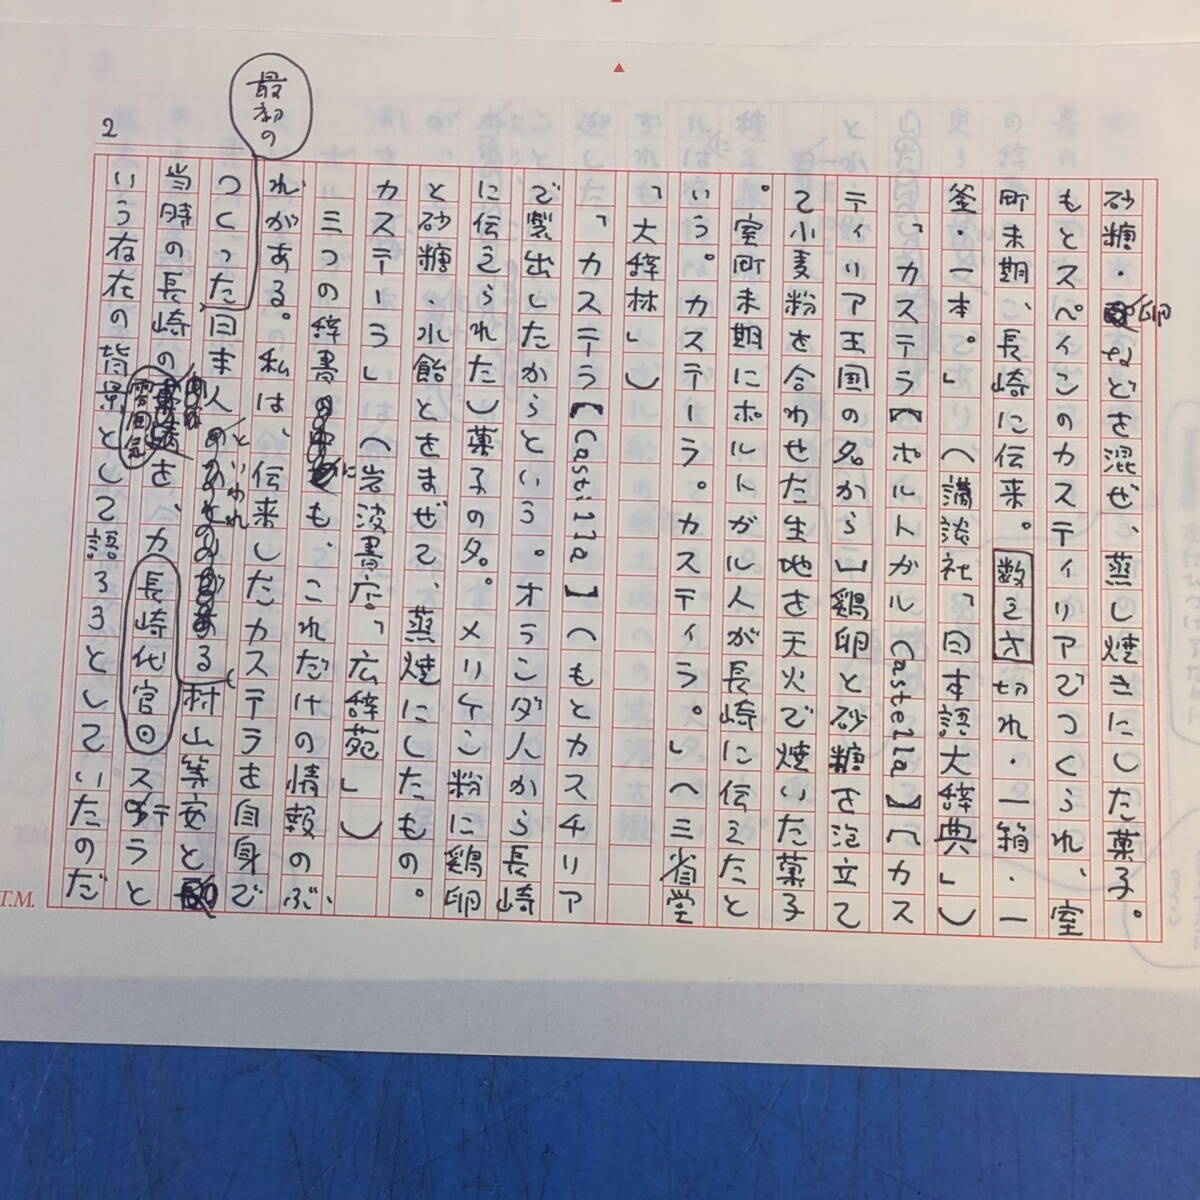 2
砂糖・卵などを混ぜ、蒸し焼きにした菓子。
もとスペインのカスティリアでつくられ、室
町末期、長崎に伝来。数え方 切れ・一箱・一
釜・一本。」(講談社「日本語大辞典」)
「カステラ【ポルトガルCastella】(カス
ティリア王国の名から)鶏卵と砂糖を泡立て
て小麦粉を合わせた生地を天火で焼いた菓子
。室町末期にポルトガル人が長崎に伝えたと
いう。カステーラ。カスティラ。」(三省堂
「大辞林」)
「カステーラ【Castilla】(もとカスチリア
で製出したからという。オランダ人から長崎
に伝えられた)菓子の名。メリケン粉に鶏卵
と砂糖、水飴とをまぜて、蒸焼にしたもの。
カステーラ」(岩波書店「広辞苑」)
三つの辞書にも、これだけの情報のぶ
れがある。私は、伝来したカステラを自身で
最初の
つくった日本人といわれる村山等安と
当時の長崎の雰囲気を、カステラと
長崎代官の
いう存在の背景として語ろうとしていたのだ
T.M.